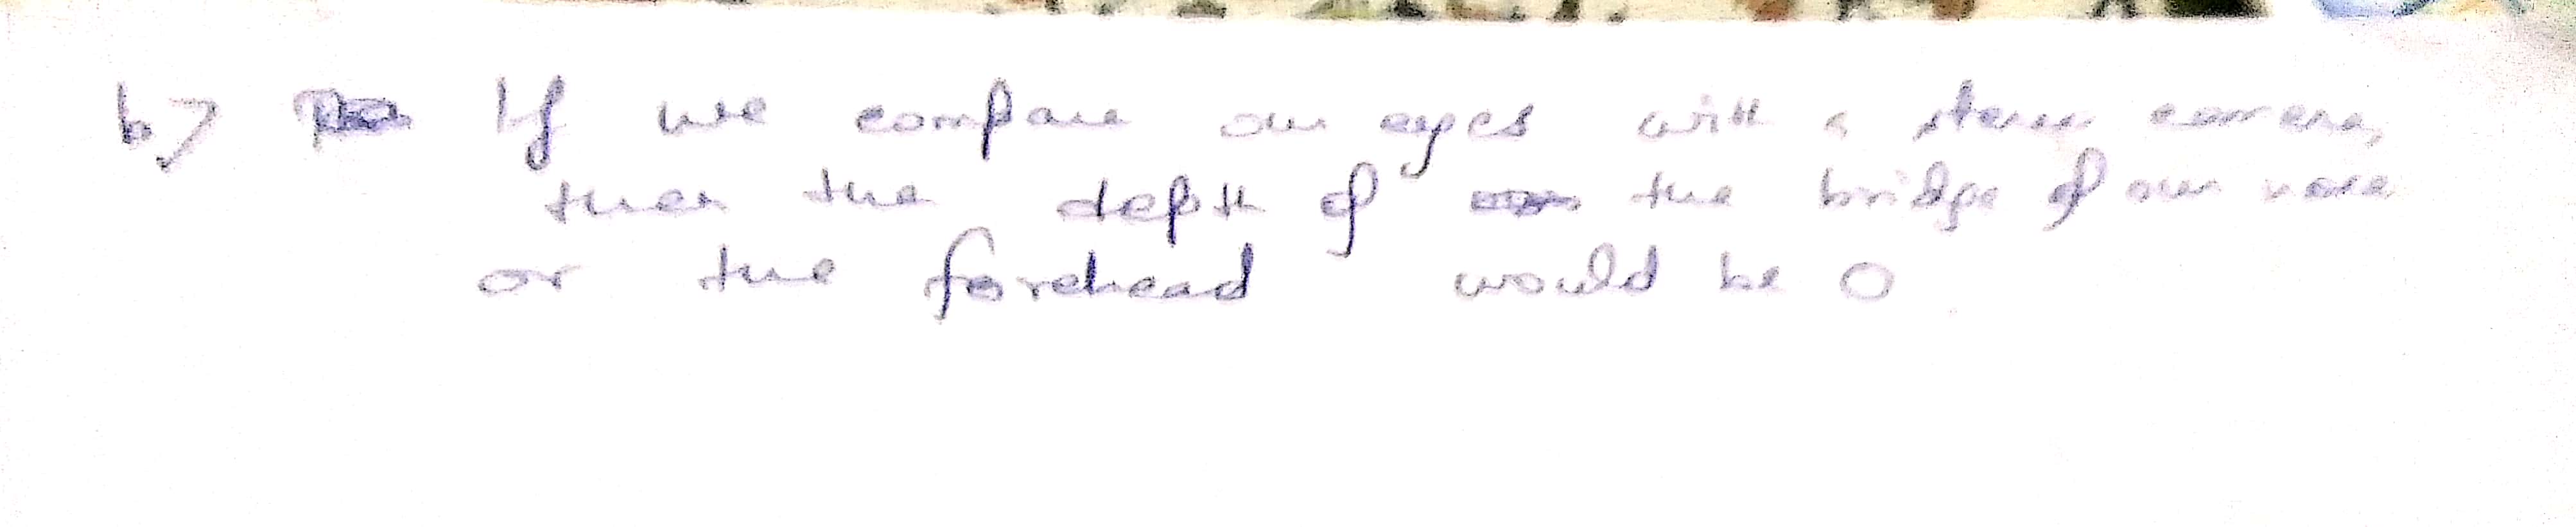 b) If we compare our eyes with a stereo camera,
then the depth of the bridge of our nose
or the forehead would be 0